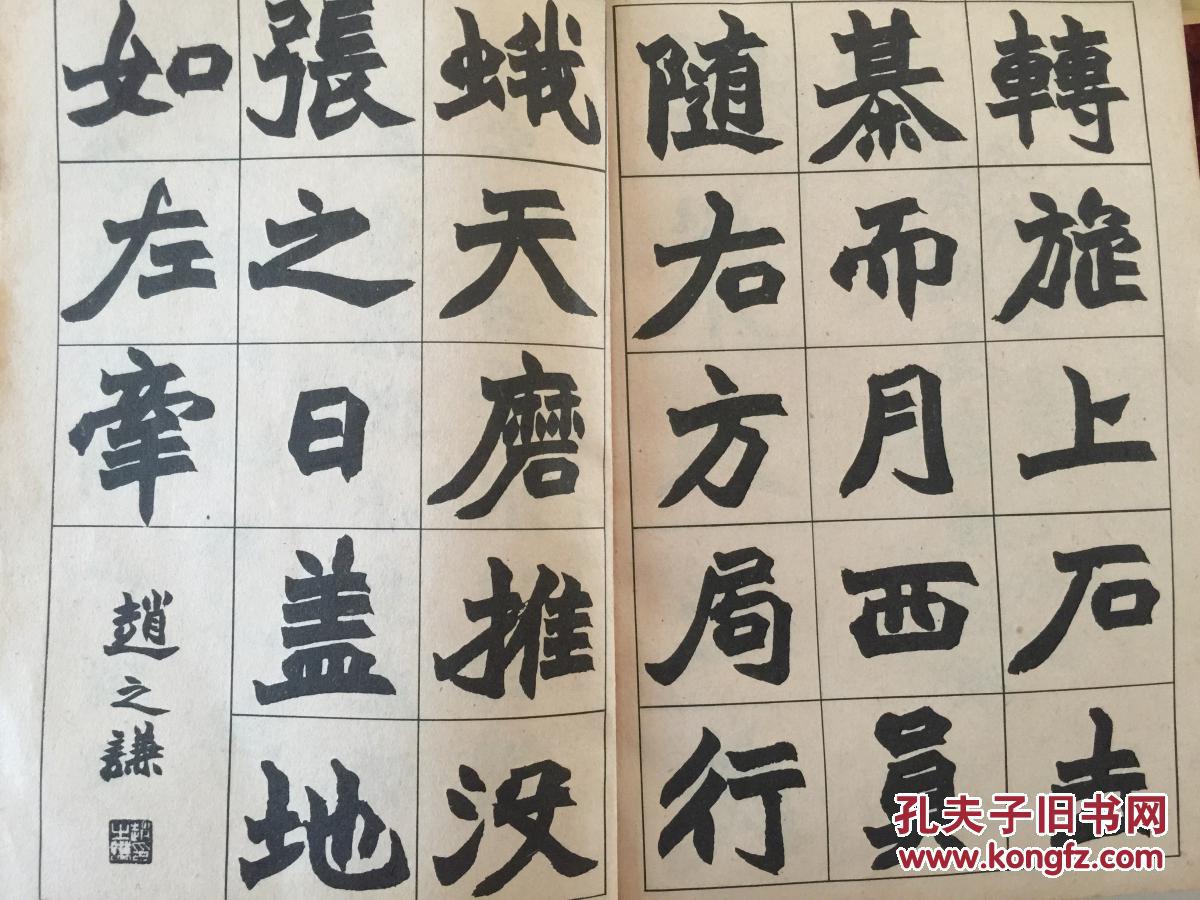 轉旋上石去
棊而月西員
随右方局行
蛾天磨推没
張之日盖地
如左牽
趙之謙
孔夫子旧书网
www.kongfz.com